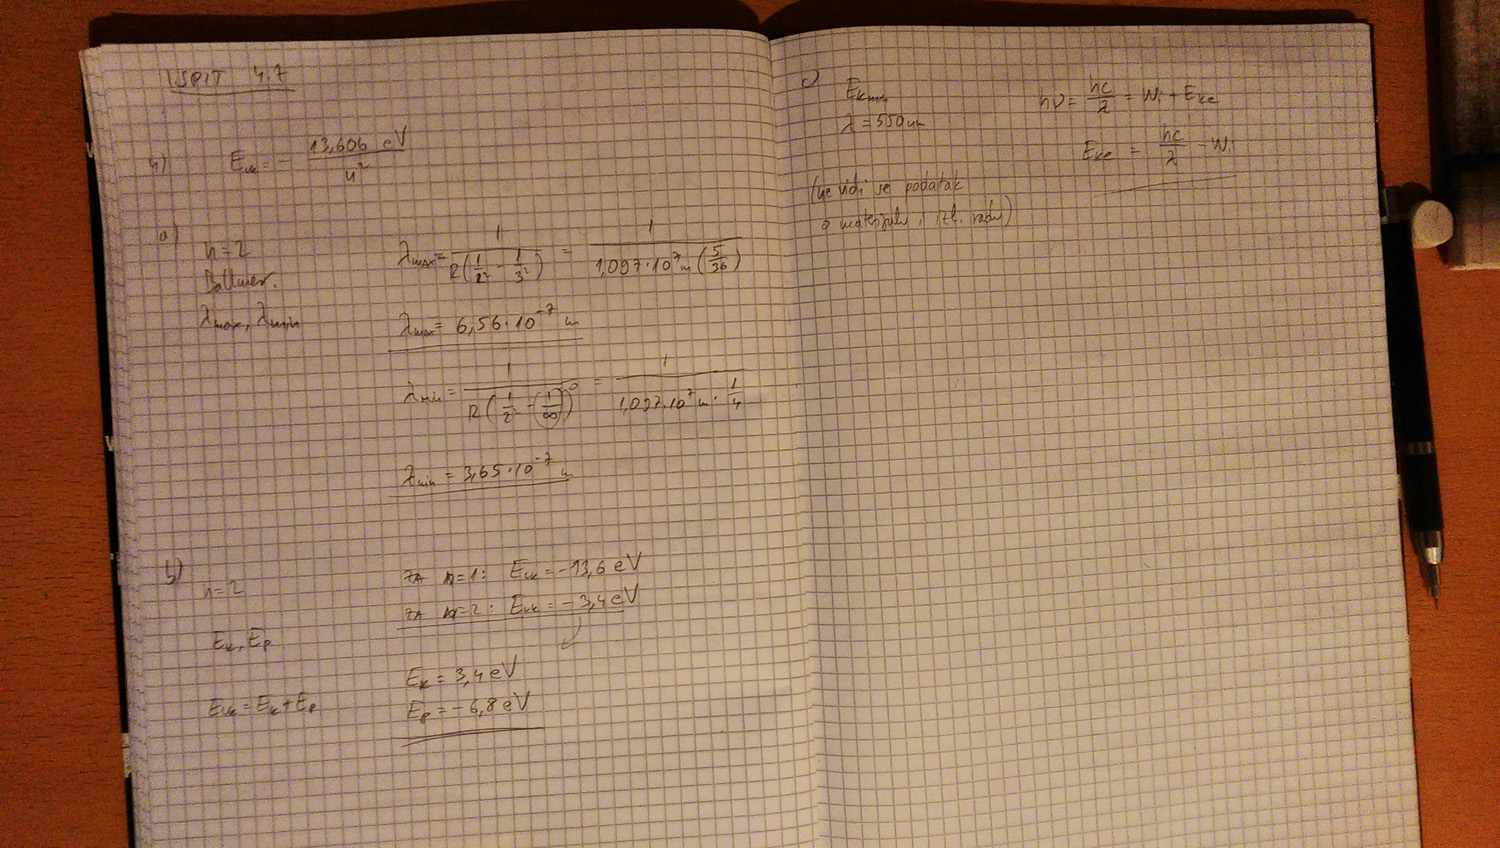 ISPIT 4.7
4) Euk = - 13,606 eV / n²
a) n=2
Ballmer.
λmax, λmin
λmax = 1 / R(1/2² - 1/3²) = 1 / 1,097·10⁷ m (5/36)
λmax = 6,56·10⁻⁷ m
λmin = 1 / R(1/2² - (1/∞)→0) = 1 / 1,097·10⁷ m · 1/4
λmin = 3,65·10⁻⁷ m
b) n=2
Ek, Ep
Euk = Ek + Ep
ZA n=1: Euk = -13,6 eV
ZA n=2: Euk = -3,4 eV
Ek = 3,4 eV
Ep = -6,8 eV
c) Ekmax
λ = 550 nm
(ne vidi se podatak
o materijalu, izl. radu)
hν = hc/λ = Wi + Eke
Eke = hc/λ - Wi